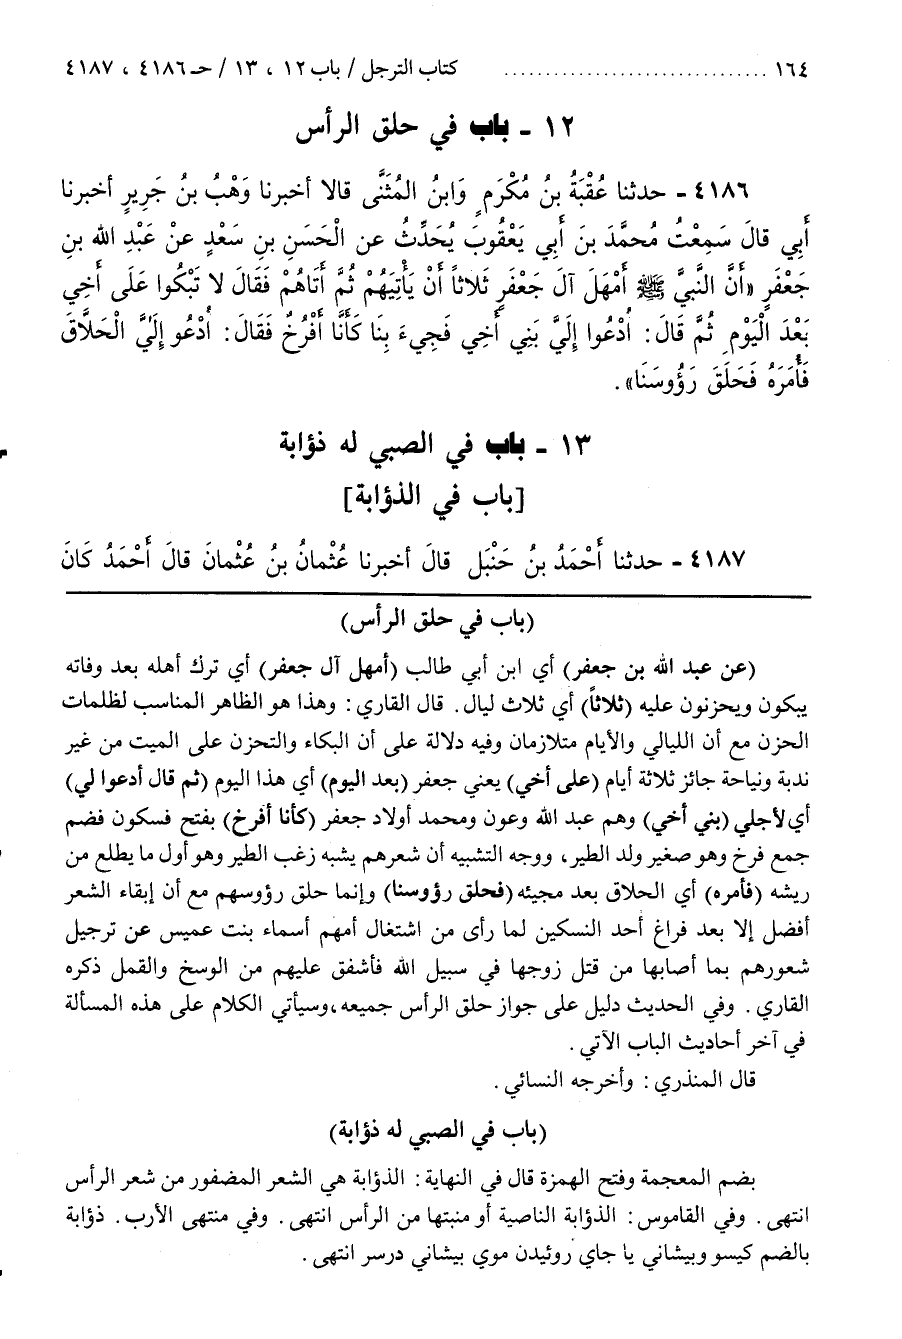 ١٦٤ ................................ كتاب الترجل / باب ١٢ ، ١٣ / حـ ٤١٨٦ ، ٤١٨٧
١٢ - باب في حلق الرأس
٤١٨٦ - حدثنا عُقبَةُ بنُ مُكْرَمٍ وَابنُ المُثَنَّى قالا أخبرنا وَهْبُ بنُ جَرِيرٍ أخبرنا
أَبِي قالَ سَمِعْتُ مُحمَّدَ بنَ أَبِي يَعْقُوبَ يُحَدِّثُ عن الْحَسَنِ بنِ سَعْدٍ عنْ عَبْدِ الله بنِ
جَعْفَرٍ «أَنَّ النَّبيَّ ﷺ أَمْهَلَ آلَ جَعْفَرٍ ثَلاثاً أَنْ يَأْتِيَهُمْ ثُمَّ أَتَاهُمْ فَقَالَ لا تَبْكُوا عَلَى أَخِي
بَعْدَ الْيَوْمِ ثُمَّ قَالَ: اُدْعُوا إِلَيَّ بَنِي أَخِي فَجِيءَ بِنَا كَأَنَّا أَفْرُخٌ فَقَالَ: اُدْعُو إِلَيَّ الْحَلَّاقَ
فَأَمَرَهُ فَحَلَقَ رَؤُوسَنَا».
١٣ - باب في الصبي له ذؤابة
[باب في الذؤابة]
٤١٨٧ - حدثنا أَحْمَدُ بنُ حَنْبَل قالَ أخبرنا عُثْمانُ بنُ عُثْمانَ قالَ أَحْمَدُ كَانَ
(باب في حلق الرأس)
(عن عبد الله بن جعفر) أي ابن أبي طالب (أمهل آل جعفر) أي ترك أهله بعد وفاته
يبكون ويحزنون عليه (ثلاثاً) أي ثلاث ليال. قال القاري: وهذا هو الظاهر المناسب لظلمات
الحزن مع أن الليالي والأيام متلازمان وفيه دلالة على أن البكاء والتحزن على الميت من غير
ندبة ونياحة جائز ثلاثة أيام (على أخي) يعني جعفر (بعد اليوم) أي هذا اليوم (ثم قال أدعوا لي)
أي لأجلي (بني أخي) وهم عبد الله وعون ومحمد أولاد جعفر (كأنا أفرخ) بفتح فسكون فضم
جمع فرخ وهو صغير ولد الطير، ووجه التشبيه أن شعرهم يشبه زغب الطير وهو أول ما يطلع من
ريشه (فأمره) أي الحلاق بعد مجيئه (فحلق رؤوسنا) وإنما حلق رؤوسهم مع أن إبقاء الشعر
أفضل إلا بعد فراغ أحد النسكين لما رأى من اشتغال أمهم أسماء بنت عميس عن ترجيل
شعورهم بما أصابها من قتل زوجها في سبيل الله فأشفق عليهم من الوسخ والقمل ذكره
القاري. وفي الحديث دليل على جواز حلق الرأس جميعه، وسيأتي الكلام على هذه المسألة
في آخر أحاديث الباب الآتي.
قال المنذري: وأخرجه النسائي.
(باب في الصبي له ذؤابة)
بضم المعجمة وفتح الهمزة قال في النهاية: الذؤابة هي الشعر المضفور من شعر الرأس
انتهى. وفي القاموس: الذؤابة الناصية أو منبتها من الرأس انتهى. وفي منتهى الأرب. ذؤابة
بالضم كيسو وبيشاني يا جاي روئيدن موي بيشاني درسر انتهى.